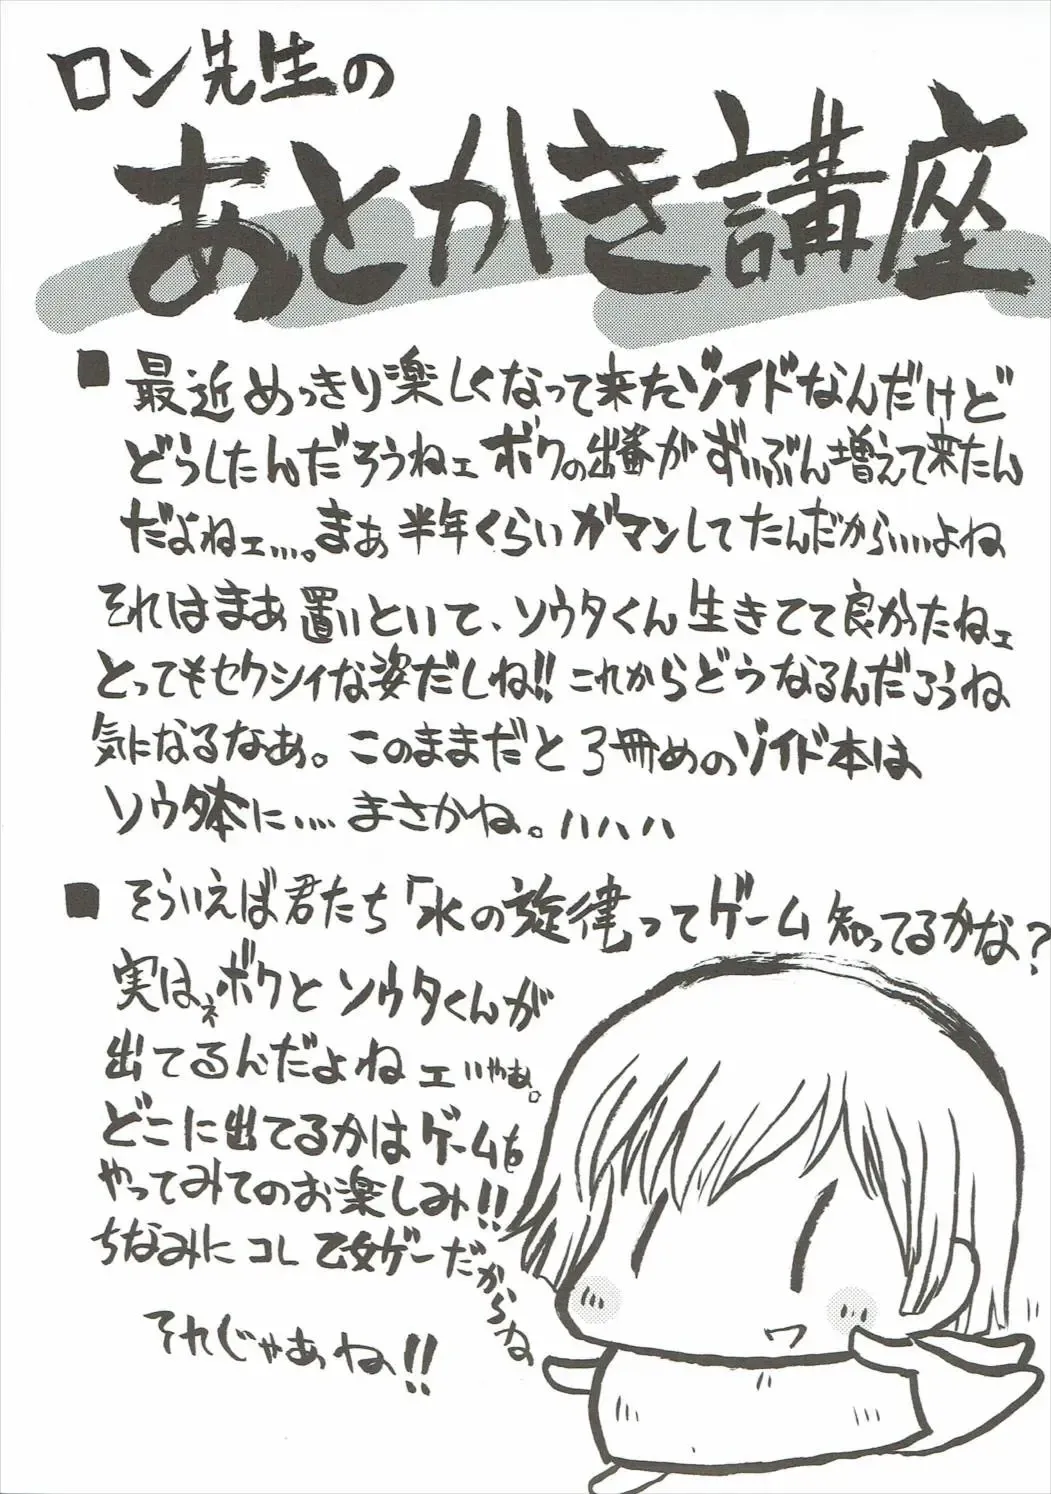 ロン先生の
あとかき講座
■最近めっきり楽しくなって来たゾイドなんだけど
どうしたんだろうねェ ボクの出番がずいぶん増えて来たん
だよねェ…。まぁ半年くらいガマンしてたんだから‥‥よね
それはまあ置いといて、ソウタくん生きてて良かったねェ
とってもセクシィな姿だしね!!これからどうなるんだろうね
気になるなあ。このままだと3冊めのゾイド本は
ソウタ本に‥‥まさかね。ハハハ
■そういえば君たち「水の旋律」ってゲーム知ってるかな?
実はネボクとソウタくんが
出てるんだよねェいやぁ。
どこに出てるかはゲームを
やってみてのお楽しみ!!
ちなみにコレ乙女ゲーだからね
それじゃあね!!